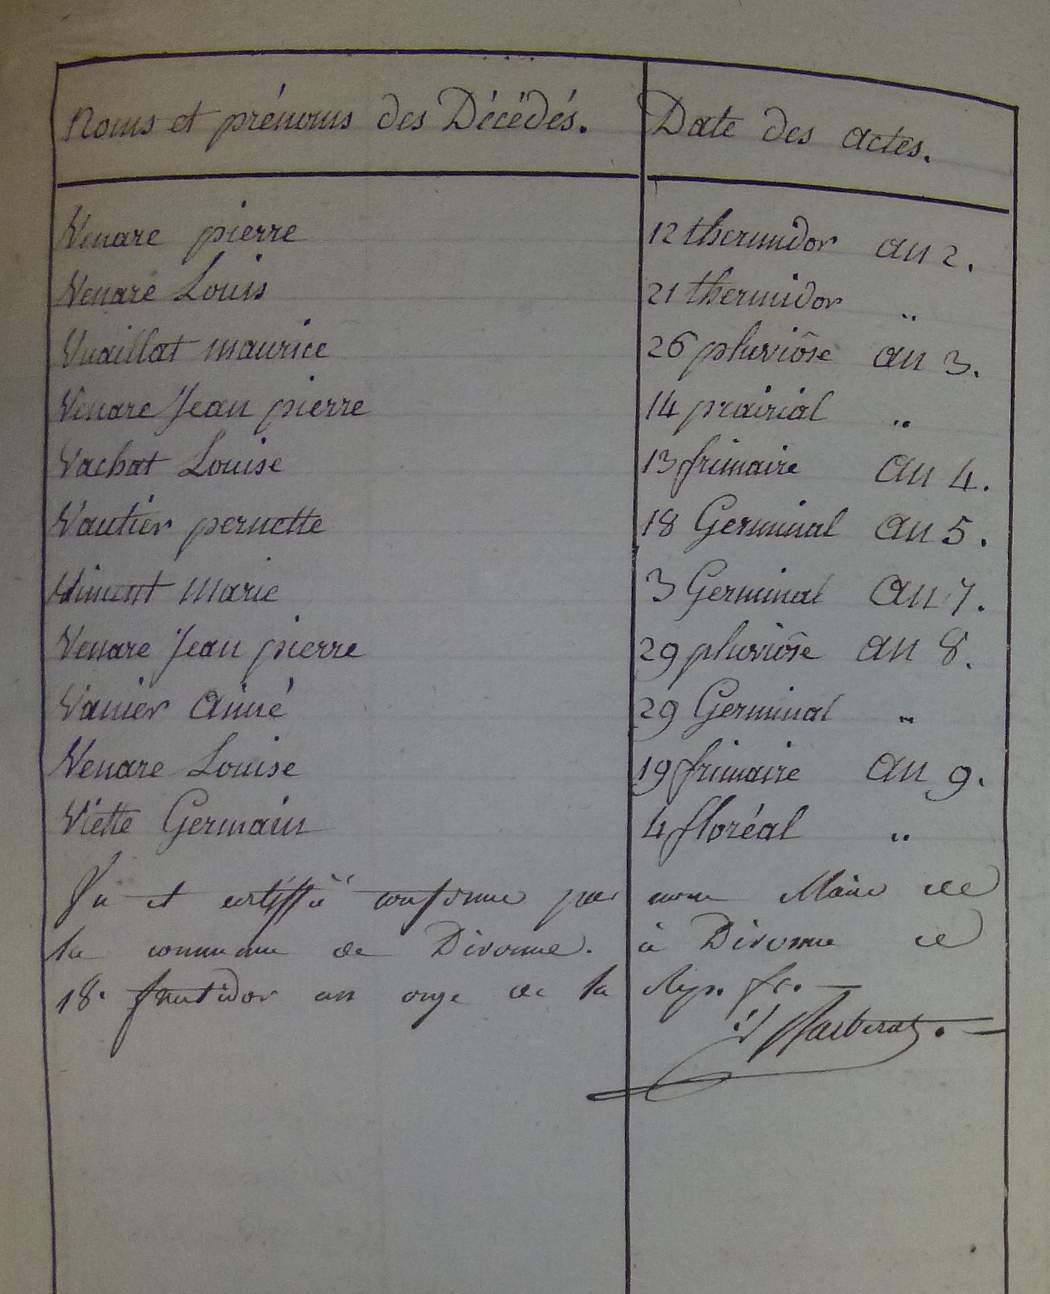 Noms et prénoms des Décédés. Date des actes.
Venare pierre 12 thermidor an 2.
Venare Louis 21 thermidor "
Vuaillat maurice 26 pluviôse an 3.
Venare Jean pierre 14 prairial "
Vachat Louise 13 frimaire an 4.
Vautier pernette 18 Germinal an 5.
Viment marie 3 Germinal an 7.
Venare Jean pierre 29 pluviôse an 8.
Vanier Aimé 29 Germinal "
Venare Louise 19 frimaire an 9.
Viette Germain 4 floréal "
Vu et certiffié conforme par nous Maire de
la commune de Divonne. à Divonne ce
18. fructidor an onze de la Rep. fr.